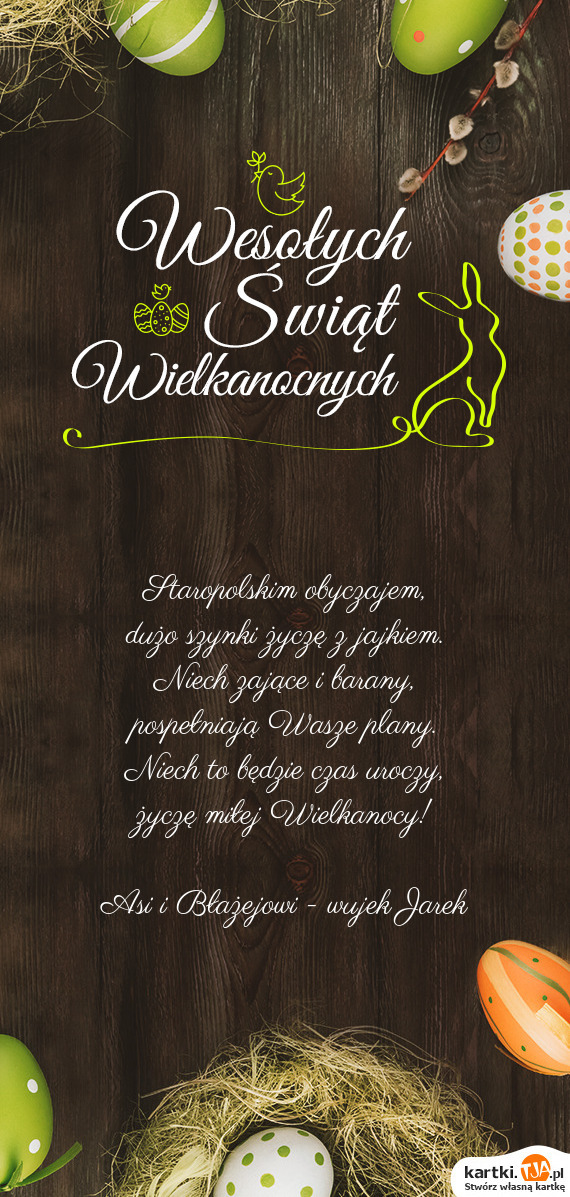 Wesołych
Świąt
Wielkanocnych
Staropolskim obyczajem,
dużo szynki życzę z jajkiem.
Niech zające i barany,
pospełniają Wasze plany.
Niech to będzie czas uroczy,
życzę miłej Wielkanocy!
Asi i Błażejowi - wujek Jarek
kartki.TJA.pl
Stwórz własną kartkę